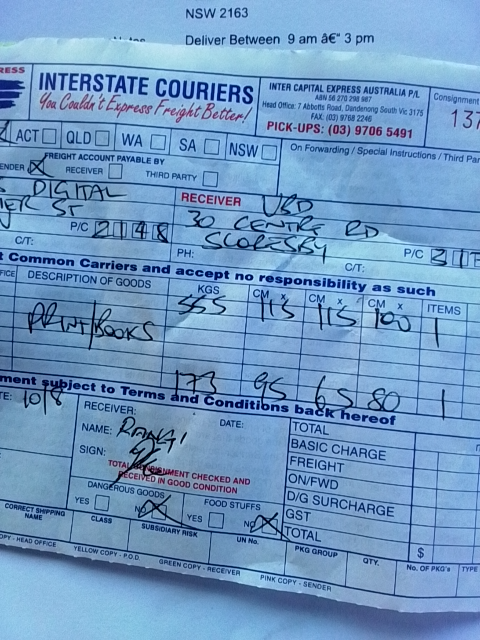 NSW 2163
Deliver Between 9 am â€“ 3 pm
INTERSTATE COURIERS
You Couldn't Express Freight Better!
INTER CAPITAL EXPRESS AUSTRALIA P/L
ABN 56 270 298 987
Head Office: 7 Abbotts Road, Dandenong South Vic 3175
FAX: (03) 9768 2246
PICK-UPS: (03) 9706 5491
Consignment
137
ACT QLD WA SA NSW
On Forwarding / Special Instructions / Third Par
FREIGHT ACCOUNT PAYABLE BY
ENDER RECEIVER THIRD PARTY
DIGITAL
ST
P/C 2148
C/T:
RECEIVER UBD
30 CENTRE RD
SCORESBY
PH: C/T: P/C 317
t Common Carriers and accept no responsibility as such
FICE DESCRIPTION OF GOODS KGS CM x CM x CM x ITEMS
PRINT/BOOKS 565 115 115 100 1
173 95 65 80 1
ment subject to Terms and Conditions back hereof
TE: 10/8
RECEIVER: DATE:
NAME:
SIGN:
TOTAL CONSIGNMENT CHECKED AND
RECEIVED IN GOOD CONDITION
DANGEROUS GOODS FOOD STUFFS
YES NO YES NO
TOTAL
BASIC CHARGE
FREIGHT
ON/FWD
D/G SURCHARGE
GST
TOTAL
$
CORRECT SHIPPING
NAME
CLASS SUBSIDIARY RISK UN No. PKG GROUP QTY. No. OF PKG's TYPE
OPY - HEAD OFFICE YELLOW COPY - P.O.D. GREEN COPY - RECEIVER PINK COPY - SENDER